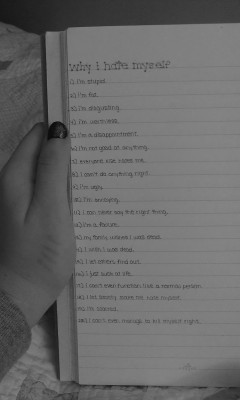 Why I hate myself
1). I'm stupid.
2). I'm fat.
3). I'm disgusting.
4). I'm worthless.
5). I'm a disappointment.
6). I'm not good at anything.
7). everyone else hates me.
8). I don't do anything right.
9). I'm ugly.
10). I'm annoying.
11). I can never say the right thing.
12). I'm a failure.
13). my family wishes I was dead.
14). I wish I was dead.
15). I let others find out.
16). I just suck at life.
17). I can't even function like a normal person.
18). I let
19). I'm
20). I can't even manage to kill myself right.